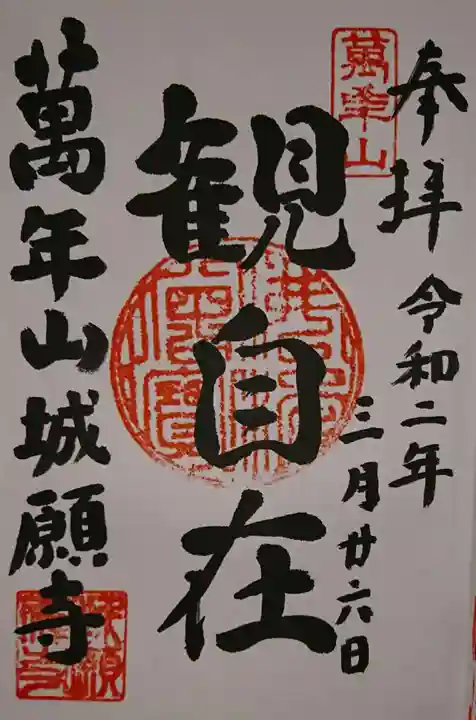 奉拝
令和二年
三月廿六日
萬年山
観自在
萬年山城願寺